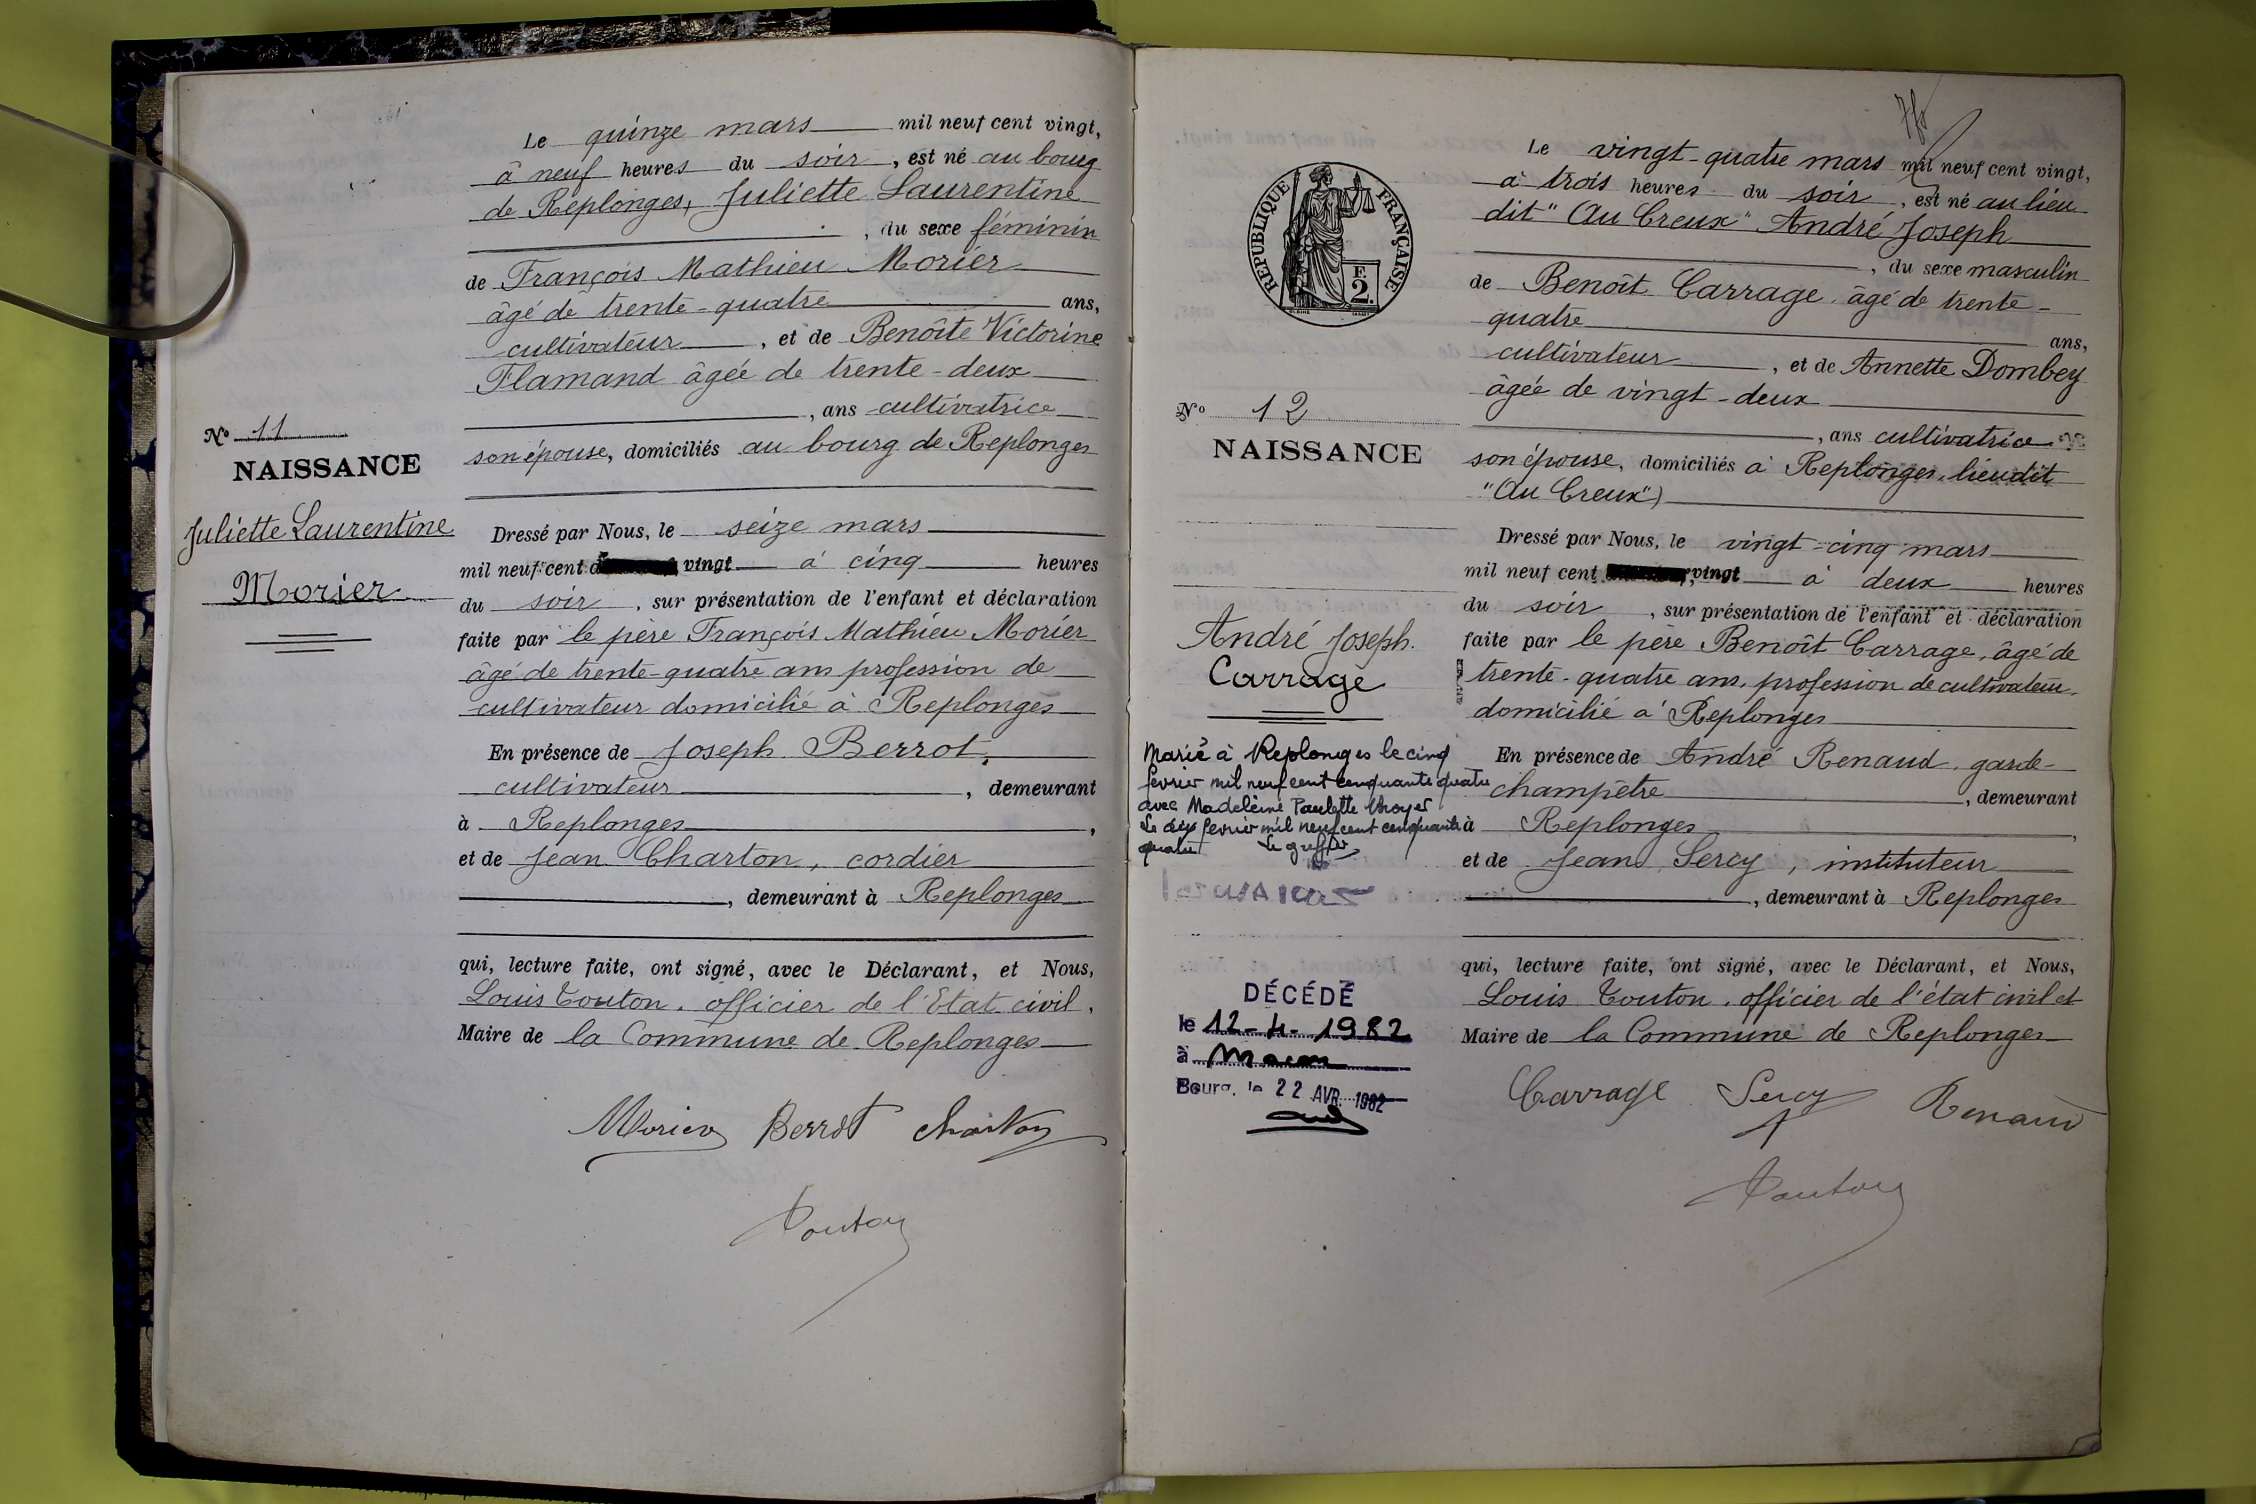 Le quinze mars mil neuf cent vingt,
à neuf heures du soir, est né au bourg
de Replonges, Juliette Laurentine
, du sexe féminin
de François Mathieu Morier
âgé de trente-quatre ans,
cultivateur, et de Benoîte Victorine
Flamand âgée de trente-deux
, ans cultivatrice
son épouse, domiciliés au bourg de Replonges
No 11
NAISSANCE
Juliette Laurentine
Morier
Dressé par Nous, le seize mars
mil neuf cent vingt à cinq heures
du soir, sur présentation de l'enfant et déclaration
faite par le père François Mathieu Morier
âgé de trente-quatre ans profession de
cultivateur domicilié à Replonges
En présence de Joseph Berrot,
cultivateur, demeurant
à Replonges,
et de Jean Charton, cordier
, demeurant à Replonges
qui, lecture faite, ont signé, avec le Déclarant, et Nous,
Louis Touton, officier de l'Etat civil,
Maire de la Commune de Replonges
Morier Berrot Charton
Touton
RÉPUBLIQUE FRANÇAISE
F.
2.
Le vingt-quatre mars mil neuf cent vingt,
à trois heures du soir, est né au lieu
dit "Au Creux" André Joseph
, du sexe masculin
de Benoît Carrage âgé de trente-
quatre ans,
cultivateur, et de Annette Dombey
âgée de vingt-deux
, ans cultivatrice
son épouse, domiciliés à Replonges, lieudit
"Au Creux")
No 12
NAISSANCE
André Joseph.
Carrage
Dressé par Nous, le vingt-cinq mars
mil neuf cent vingt à deux heures
du soir, sur présentation de l'enfant et déclaration
faite par le père Benoît Carrage, âgé de
trente-quatre ans, profession de cultivateur,
domicilié à Replonges
Marié à Replonges le cinq
fevrier mil neuf cent cinquante quatre
avec Madeleine Paulette
Le dix fevrier mil neuf cent cinquante
quatre Le greffier
En présence de André Renaud, garde-
champêtre, demeurant
à Replonges,
et de Jean Sercy, instituteur
, demeurant à Replonges
qui, lecture faite, ont signé, avec le Déclarant, et Nous,
Louis Touton, officier de l'état civil et
Maire de la Commune de Replonges
DÉCÉDÉ
le 12-4-1982
à Macon
Bourg, le 22 AVR. 1982
Carrage Sercy Renaud
Touton